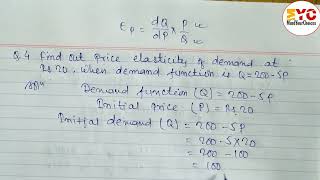 EYC
Mind Your Choices
Ep = dQ/dP × P/Q
Q.4 Find out Price elasticity of demand at
Rs 20, when demand function is Q=200-5P
Solⁿ Demand function (Q) = 200-5P
Initial Price (P) = Rs 20
Initial demand (Q) = 200-5P
= 200-5×20
= 200-100
= 100